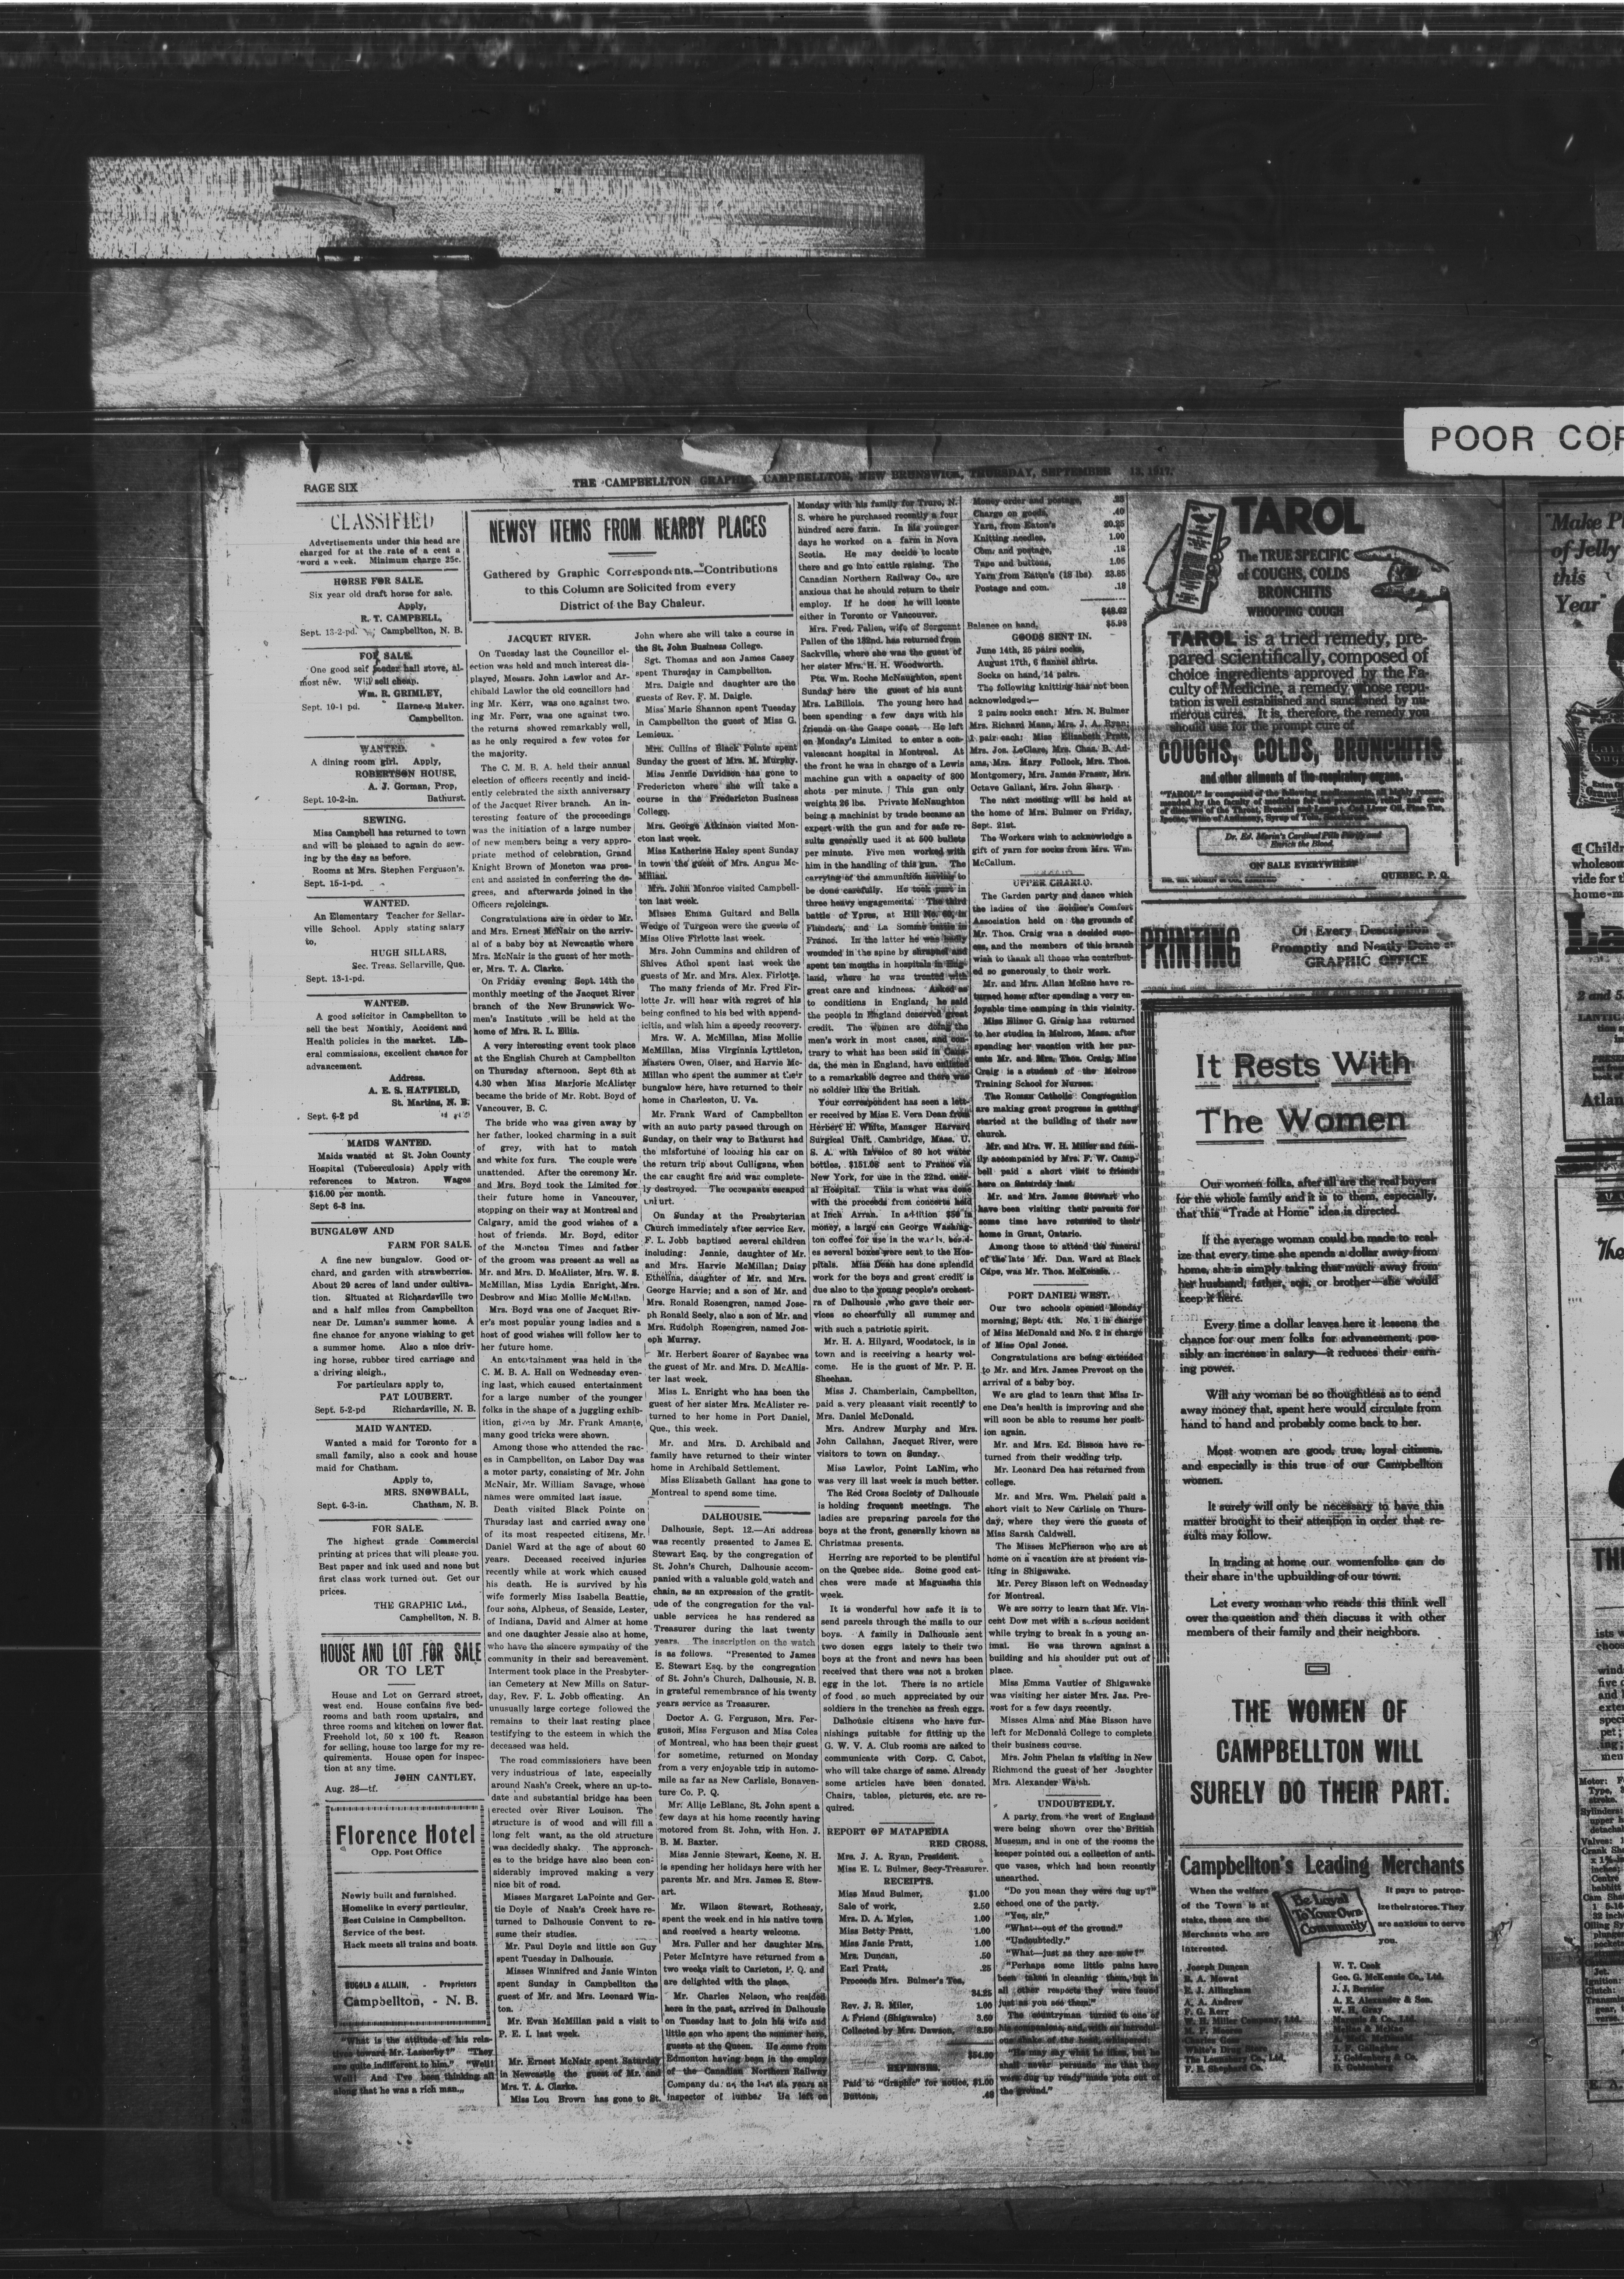 POOR COP
PAGE SIX
THE CAMPBELLTON GRAPHIC, CAMPBELLTON, NEW BRUNSWICK, THURSDAY, SEPTEMBER 13, 1917.
CLASSIFIED
Advertisements under this head are
charged for at the rate of a cent a
word a week. Minimum charge 25c.
HORSE FOR SALE.
Six year old draft horse for sale.
Apply,
R. T. CAMPBELL,
Sept. 13-2-pd. Campbellton, N. B.
FOR SALE.
One good self feeder hall stove, al-
most new. Will sell cheap.
Wm. R. GRIMLEY,
Sept. 10-1 pd. Harness Maker.
Campbellton.
WANTED.
A dining room girl. Apply,
ROBERTSON HOUSE,
A. J. Gorman, Prop,
Sept. 10-2-in. Bathurst.
SEWING.
Miss Campbell has returned to town
and will be pleased to again do sew-
ing by the day as before.
Rooms at Mrs. Stephen Ferguson's.
Sept. 15-1-pd.
WANTED.
An Elementary Teacher for Sellar-
ville School. Apply stating salary
to,
HUGH SILLARS,
Sec. Treas. Sellarville, Que.
Sept. 13-1-pd.
WANTED.
A good solicitor in Campbellton to
sell the best Monthly, Accident and
Health policies in the market. Lib-
eral commissions, excellent chance for
advancement.
Address.
A. E. S. HATFIELD,
St. Martins, N. B.
Sept. 6-2 pd
MAIDS WANTED.
Maids wanted at St. John County
Hospital (Tuberculosis) Apply with
references to Matron. Wages
$16.00 per month.
Sept 6-3 ins.
BUNGALOW AND
FARM FOR SALE.
A fine new bungalow. Good or-
chard, and garden with strawberries.
About 20 acres of land under cultiva-
tion. Situated at Richardsville two
and a half miles from Campbellton
near Dr. Luman's summer home. A
fine chance for anyone wishing to get
a summer home. Also a nice driv-
ing horse, rubber tired carriage and
a driving sleigh.,
For particulars apply to,
PAT LOUBERT.
Sept. 5-2-pd Richardsville, N. B.
MAID WANTED.
Wanted a maid for Toronto for a
small family, also a cook and house
maid for Chatham.
Apply to,
MRS. SNOWBALL,
Sept. 6-3-in. Chatham, N. B.
FOR SALE.
The highest grade Commercial
printing at prices that will please you.
Best paper and ink used and none but
first class work turned out. Get our
prices.
THE GRAPHIC Ltd.,
Campbellton, N. B.
HOUSE AND LOT FOR SALE
OR TO LET
House and Lot on Gerrard street,
west end. House contains five bed-
rooms and bath room upstairs, and
three rooms and kitchen on lower flat.
Freehold lot, 50 x 100 ft. Reason
for selling, house too large for my re-
quirements. House open for inspec-
tion at any time.
JOHN CANTLEY.
Aug. 28—tf.
Florence Hotel
Opp. Post Office
Newly built and furnished.
Homelike in every particular.
Best Cuisine in Campbellton.
Service of the best.
Hack meets all trains and boats.
HUGOLD & ALLAIN, - Proprietors
Campbellton, - N. B.
"What is the attitude of his rela-
tives toward Mr. Lasserby?" "They
are quite indifferent to him." "Well!
Well! And I've been thinking all
along that he was a rich man.,,
NEWSY ITEMS FROM NEARBY PLACES
Gathered by Graphic Correspondents.—Contributions
to this Column are Solicited from every
District of the Bay Chaleur.
JACQUET RIVER.
On Tuesday last the Councillor el-
ection was held and much interest dis-
played, Messrs. John Lawlor and Ar-
chibald Lawlor the old councillors had
ing Mr. Kerr, was one against two.
ing Mr. Ferr, was one against two.
the returns showed remarkably well,
as he only required a few votes for
the majority.
The C. M. B. A. held their annual
election of officers recently and incid-
ently celebrated the sixth anniversary
of the Jacquet River branch. An in-
teresting feature of the proceedings
was the initiation of a large number
of new members being a very appro-
priate method of celebration, Grand
Knight Brown of Moncton was pres-
ent and assisted in conferring the de-
grees, and afterwards joined in the
Officers rejoicings.
Congratulations are in order to Mr.
and Mrs. Ernest McNair on the arriv-
al of a baby boy at Newcastle where
Mrs. McNair is the guest of her moth-
er, Mrs. T. A. Clarke.
On Friday evening Sept. 14th the
monthly meeting of the Jacquet River
branch of the New Brunswick Wo-
men's Institute will be held at the
home of Mrs. R. L. Ellis.
A very interesting event took place
at the English Church at Campbellton
on Thursday afternoon, Sept 6th at
4.30 when Miss Marjorie McAlister
became the bride of Mr. Robt. Boyd of
Vancouver, B. C.
The bride who was given away by
her father, looked charming in a suit
of grey, with hat to match
and white fox furs. The couple were
unattended. After the ceremony Mr.
and Mrs. Boyd took the Limited for
their future home in Vancouver,
stopping on their way at Montreal and
Calgary, amid the good wishes of a
host of friends. Mr. Boyd, editor
of the Moncton Times and father
of the groom was present as well as
Mr. and Mrs. D. McAlister, Mrs. W. S.
McMillan, Miss Lydia Enright, Mrs.
Desbrow and Miss Mollie McMillan.
Mrs. Boyd was one of Jacquet Riv-
er's most popular young ladies and a
host of good wishes will follow her to
her future home.
An entertainment was held in the
C. M. B. A. Hall on Wednesday even-
ing last, which caused entertainment
for a large number of the younger
folks in the shape of a juggling exhib-
ition, given by Mr. Frank Amante,
many good tricks were shown.
Among those who attended the rac-
es in Campbellton, on Labor Day was
a motor party, consisting of Mr. John
McNair, Mr. William Savage, whose
names were ommited last issue.
Death visited Black Pointe on
Thursday last and carried away one
of its most respected citizens, Mr.
Daniel Ward at the age of about 60
years. Deceased received injuries
recently while at work which caused
his death. He is survived by his
wife formerly Miss Isabella Beattie,
four sons, Alpheus, of Seaside, Lester,
of Indiana, David and Almer at home
and one daughter Jessie also at home,
who have the sincere sympathy of the
community in their sad bereavement.
Interment took place in the Presbyter-
ian Cemetery at New Mills on Satur-
day, Rev. F. L. Jobb officating. An
unusually large cortege followed the
remains to their last resting place
testifying to the esteem in which the
deceased was held.
The road commissioners have been
very industrious of late, especially
around Nash's Creek, where an up-to-
date and substantial bridge has been
erected over River Louison. The
structure is of wood and will fill a
long felt want, as the old structure
was decidedly shaky. The approach-
es to the bridge have also been con-
siderably improved making a very
nice bit of road.
Misses Margaret LaPointe and Ger-
tie Doyle of Nash's Creek have re-
turned to Dalhousie Convent to re-
sume their studies.
Mr. Paul Doyle and little son Guy
spent Tuesday in Dalhousie.
Misses Winnifred and Janie Winton
spent Sunday in Campbellton the
guest of Mr. and Mrs. Leonard Win-
ton.
Mr. Evan McMillan paid a visit to
P. E. I. last week.
Mr. Ernest McNair spent Saturday
in Newcastle the guest of Mr. and
Mrs. T. A. Clarke.
Miss Lou Brown has gone to St.
John where she will take a course in
the St. John Business College.
Sgt. Thomas and son James Casey
spent Thursday in Campbellton.
Mrs. Daigle and daughter are the
guests of Rev. F. M. Daigle.
Miss Marie Shannon spent Tuesday
in Campbellton the guest of Miss G.
Lemieux.
Mrs. Cullins of Black Pointe spent
Sunday the guest of Mrs. M. Murphy.
Miss Jennie Davidson has gone to
Fredericton where she will take a
course in the Fredericton Business
College.
Mrs. George Atkinson visited Mon-
cton last week.
Miss Katherine Haley spent Sunday
in town the guest of Mrs. Angus Mc-
Millan.
Mrs. John Monroe visited Campbell-
ton last week.
Misses Emma Guitard and Bella
Wedge of Turgeon were the guests of
Miss Olive Firlotte last week.
Mrs. John Cummins and children of
Shives Athol spent last week the
guests of Mr. and Mrs. Alex. Firlotte.
The many friends of Mr. Fred Fir-
lotte Jr. will hear with regret of his
being confined to his bed with append-
icitis, and wish him a speedy recovery.
Mrs. W. A. McMillan, Miss Mollie
McMillan, Miss Virginnia Lyttleton,
Masters Owen, Olser, and Harvie Mc-
Millan who spent the summer at their
bungalow here, have returned to their
home in Charleston, U. Va.
Mr. Frank Ward of Campbellton
with an auto party passed through on
Sunday, on their way to Bathurst had
the misfortune of loosing his car on
the return trip about Culligans, when
the car caught fire and was complete-
ly destroyed. The occupants escaped
unhurt.
On Sunday at the Presbyterian
Church immediately after service Rev.
F. L. Jobb baptised several children
including: Jennie, daughter of Mr.
and Mrs. Harvie McMillan; Daisy
Ethelina, daughter of Mr. and Mrs.
George Harvie; and a son of Mr. and
Mrs. Ronald Rosengren, named Jose-
ph Ronald Seely, also a son of Mr. and
Mrs. Rudolph Rosengren, named Jos-
eph Murray.
Mr. Herbert Soarer of Sayabec was
the guest of Mr. and Mrs. D. McAllis-
ter last week.
Miss L. Enright who has been the
guest of her sister Mrs. McAlister re-
turned to her home in Port Daniel,
Que., this week.
Mr. and Mrs. D. Archibald and
family have returned to their winter
home in Archibald Settlement.
Miss Elizabeth Gallant has gone to
Montreal to spend some time.
DALHOUSIE.
Dalhousie, Sept. 12.—An address
was recently presented to James E.
Stewart Esq. by the congregation of
St. John's Church, Dalhousie accom-
panied with a valuable gold watch and
chain, as an expression of the gratit-
ude of the congregation for the val-
uable services he has rendered as
Treasurer during the last twenty
years. The inscription on the watch
is as follows. "Presented to James
E. Stewart Esq. by the congregation
of St. John's Church, Dalhousie, N. B.
in grateful remembrance of his twenty
years service as Treasurer.
Doctor A. G. Ferguson, Mrs. Fer-
guson, Miss Ferguson and Miss Coles
of Montreal, who has been their guest
for sometime, returned on Monday
from a very enjoyable trip in automo-
mile as far as New Carlisle, Bonaven-
ture Co. P. Q.
Mr. Allie LeBlanc, St. John spent a
few days at his home recently having
motored from St. John, with Hon. J.
B. M. Baxter.
Miss Jennie Stewart, Keene, N. H.
is spending her holidays here with her
parents Mr. and Mrs. James E. Stew-
art.
Mr. Wilson Stewart, Rothesay,
spent the week end in his native town
and received a hearty welcome.
Mrs. Fuller and her daughter Mrs.
Peter McIntyre have returned from a
two weeks visit to Carleton, P. Q. and
are delighted with the place.
Mr. Charles Nelson, who resided
here in the past, arrived in Dalhousie
on Tuesday last to join his wife and
little son who spent the summer here,
guests at the Queen. He came from
Edmonton having been in the employ
of the Canadian Northern Railway
Company during the last six years as
inspector of lumber. He left on
Monday with his family for Truro, N.
S. where he purchased recently a four
hundred acre farm. In his younger
days he worked on a farm in Nova
Scotia. He may decide to locate
there and go into cattle raising. The
Canadian Northern Railway Co., are
anxious that he should return to their
employ. If he does he will locate
either in Toronto or Vancouver.
Mrs. Fred. Pallen, wife of Sergeant
Pallen of the 132nd. has returned from
Sackville, where she was the guest of
her sister Mrs. H. H. Woodworth.
Pte. Wm. Roche McNaughton, spent
Sunday here the guest of his aunt
Mrs. LaBillois. The young hero had
been spending a few days with his
friends on the Gaspe coast. He left
on Monday's Limited to enter a con-
valescent hospital in Montreal. At
the front he was in charge of a Lewis
machine gun with a capacity of 800
shots per minute. This gun only
weights 26 lbs. Private McNaughton
being a machinist by trade became an
expert with the gun and for safe re-
sults generally used it at 500 bullets
per minute. Five men worked with
him in the handling of this gun. The
carrying of the ammunition having to
be done carefully. He took part in
three heavy engagements. The third
battle of Ypres, at Hill No. 60, in
Flanders, and La Somme battle in
France. In the latter he was badly
wounded in the spine by shrapnel and
spent ten months in hospitals in Eng-
land, where he was treated with
great care and kindness. Asked as
to conditions in England, he said
the people in England deserved great
credit. The women are doing the
men's work in most cases, and con-
trary to what has been said in Cana-
da, the men in England, have enlisted
to a remarkable degree and there was
no soldier like the British.
Your correspondent has seen a lett-
er received by Miss E. Vera Dean from
Herbert H. White, Manager Harvard
Surgical Unit. Cambridge, Mass. U.
S. A. with invoice of 80 hot water
bottles, $151.08 sent to France via
New York, for use in the 22nd.
al Hospital. This is what was done
with the proceeds from concerts held
at Inch Arran. In addition $50 in
money, a large can George Washing-
ton coffee for use in the wards, besid-
es several boxes were sent to the Hos-
pitals. Miss Dean has done splendid
work for the boys and great credit is
due also to the young people's orchest-
ra of Dalhousie ,who gave their ser-
vices so cheerfully all summer and
with such a patriotic spirit.
Mr. H. A. Hilyard, Woodstock, is in
town and is receiving a hearty wel-
come. He is the guest of Mr. P. H.
Sheehan.
Miss J. Chamberlain, Campbellton,
paid a very pleasant visit recently to
Mrs. Daniel McDonald.
Mrs. Andrew Murphy and Mrs.
John Callahan, Jacquet River, were
visitors to town on Sunday.
Miss Lawlor, Point LaNim, who
was very ill last week is much better.
The Red Cross Society of Dalhousie
is holding frequent meetings. The
ladies are preparing parcels for the
boys at the front, generally known as
Christmas presents.
Herring are reported to be plentiful
on the Quebec side. Some good cat-
ches were made at Maguasha this
week.
It is wonderful how safe it is to
send parcels through the mails to our
boys. A family in Dalhousie sent
two dozen eggs lately to their two
boys at the front and news has been
received that there was not a broken
egg in the lot. There is no article
of food so much appreciated by our
soldiers in the trenches as fresh eggs.
Dalhousie citizens who have fur-
nishings suitable for fitting up the
G. W. V. A. Club rooms are asked to
communicate with Corp. C. Cabot,
who will take charge of same. Already
some articles have been donated.
Chairs, tables, pictures, etc. are re-
quired.
REPORT OF MATAPEDIA
RED CROSS.
Mrs. J. A. Ryan, President.
Miss E. L. Bulmer, Secy-Treasurer.
RECEIPTS.
Miss Maud Bulmer, $1.00
Sale of work, 2.50
Mrs. D. A. Myles, 1.00
Miss Betty Pratt, 1.00
Miss Janie Pratt, 1.00
Mrs. Duncan, .50
Earl Pratt, .25
Proceeds Mrs. Bulmer's Tea,
34.25
Rev. J. R. Miler, 1.00
A Friend (Shigawake) 3.60
Collected by Mrs. Dawson, 8.50
$54.60
EXPENSES.
Paid to "Graphic" for notice, $1.00
Buttons, .48
Money order and postage,
Charge on goods, .40
Yarn, from Eaton's 20.25
Knitting needles, 1.00
Com. and postage, .18
Tape and buttons, 1.05
Yarn from Eaton's (18 lbs) 23.85
Postage and com. .18
$48.62
Balance on hand, $5.98
GOODS SENT IN.
June 14th, 25 pairs socks,
August 17th, 6 flannel shirts.
Socks on hand, 14 pairs.
The following knitting has not been
acknowledged:—
2 pairs socks each: Mrs. N. Bulmer
Mrs. Richard Mann, Mrs. J. A. Ryan;
1 pair each: Miss Elizabeth Pratt,
Mrs. Jos. LeClare, Mrs. Chas. B. Ad-
ams, Mrs. Mary Pollock, Mrs. Thos.
Montgomery, Mrs. James Fraser, Mrs.
Octave Gallant, Mrs. John Sharp.
The next meeting will be held at
the home of Mrs. Bulmer on Friday,
Sept. 21st.
The Workers wish to acknowledge a
gift of yarn for socks from Mrs. Wm.
McCallum.
UPPER CHARLO.
The Garden party and dance which
the ladies of the Soldier's Comfort
Association held on the grounds of
Mr. Thos. Craig was a decided succ-
ess, and the members of this branch
wish to thank all those who contribut-
ed so generously to their work.
Mr. and Mrs. Allan McRae have re-
turned home after spending a very en-
joyable time camping in this vicinity.
Miss Elinor G. Graig has returned
to her studies in Melrose, Mass. after
spending her vacation with her par-
ents Mr. and Mrs. Thos. Craig, Miss
Craig is a student of the Melrose
Training School for Nurses.
The Roman Catholic Congregation
are making great progress in getting
started at the building of their new
church.
Mr. and Mrs. W. H. Miller and fam-
ily accompanied by Mrs. F. W. Camp-
bell paid a short visit to friends
here on Saturday last.
Mr. and Mrs. James Stewart who
have been visiting their parents for
some time have returned to their
home in Grant, Ontario.
Among those to attend the funeral
of the late Mr. Dan. Ward at Black
Cape, was Mr. Thos. McKenzie.
PORT DANIEL WEST.
Our two schools opened Monday
morning, Sept. 4th. No. 1 in charge
of Miss McDonald and No. 2 in charge
of Miss Opal Jones.
Congratulations are being extended
to Mr. and Mrs. James Prevost on the
arrival of a baby boy.
We are glad to learn that Miss Ir-
ene Dea's health is improving and she
will soon be able to resume her posit-
ion again.
Mr. and Mrs. Ed. Bisson have re-
turned from their wedding trip.
Mr. Leonard Dea has returned from
college.
Mr. and Mrs. Wm. Phelan paid a
short visit to New Carlisle on Thurs-
day, where they were the guests of
Miss Sarah Caldwell.
The Misses McPherson who are at
home on a vacation are at present vis-
iting in Shigawake.
Mr. Percy Bisson left on Wednesday
for Montreal.
We are sorry to learn that Mr. Vin-
cent Dow met with a serious accident
while trying to break in a young an-
imal. He was thrown against a
building and his shoulder put out of
place.
Miss Emma Vautier of Shigawake
was visiting her sister Mrs. Jas. Pre-
vost for a few days recently.
Misses Alma and Mae Bisson have
left for McDonald College to complete
their business course.
Mrs. John Phelan is visiting in New
Richmond the guest of her daughter
Mrs. Alexander Walsh.
UNDOUBTEDLY.
A party from the west of England
were being shown over the British
Museum, and in one of the rooms the
keeper pointed out a collection of anti-
que vases, which had been recently
unearthed.
"Do you mean they were dug up?"
echoed one of the party.
"Yes, sir,"
"What—out of the ground."
"Undoubtedly."
"What—just as they are now?"
"Perhaps some little pains have
been taken in cleaning them, but in
all other respects they were found
just as you see them."
The countryman turned to one of
his companions, and, with an incredul-
ous shake of the head, whispered:
"He may say what he likes, but he
shall never persuade me that they
were dug up ready made pots out of
the ground."
TAROL
The TRUE SPECIFIC
of COUGHS, COLDS
BRONCHITIS
WHOOPING COUGH
TAROL is a tried remedy, pre-
pared scientifically, composed of
choice ingredients approved by the Fa-
culty of Medicine, a remedy whose repu-
tation is well established and sanctioned by nu-
merous cures. It is, therefore, the remedy you
should use for the prompt cure of
COUGHS, COLDS, BRONCHITIS
and other ailments of the respiratory organs.
"TAROL" is composed of the following medicaments, all highly recom-
mended by the faculty of medicine for the prevention and cure
of diseases of the Throat, Bronchi and Lungs: Cod Liver Oil, Pine Tar,
Ipecac, Wine of Antimony, Syrup of Tolu,
Dr. Ed. Morin's Cardinal Pills Purify and
Enrich the Blood.
ON SALE EVERYWHERE
QUEBEC. P. Q.
PRINTING
Of Every Description
Promptly and Neatly Done at
GRAPHIC OFFICE
It Rests With
The Women
Our women folks, after all are the real buyers
for the whole family and it is to them, especially,
that this "Trade at Home" idea is directed.
If the average woman could be made to real-
ize that every time she spends a dollar away from
home, she is simply taking that much away from
her husband, father, son, or brother—she would
keep it here.
Every time a dollar leaves here it lessens the
chance for our men folks for advancement, pos-
sibly an increase in salary—it reduces their earn-
ing power.
Will any woman be so thoughtless as to send
away money that, spent here would circulate from
hand to hand and probably come back to her.
Most women are good, true, loyal citizens,
and especially is this true of our Campbellton
women.
It surely will only be necessary to have this
matter brought to their attention in order that re-
sults may follow.
In trading at home our womenfolks can do
their share in the upbuilding of our town.
Let every woman who reads this think well
over the question and then discuss it with other
members of their family and their neighbors.
THE WOMEN OF
CAMPBELLTON WILL
SURELY DO THEIR PART.
Campbellton's Leading Merchants
When the welfare
of the Town is at
stake, these are the
Merchants who are
interested.
Be Loyal
To Your Own
Community
It pays to patron-
ize their stores. They
are anxious to serve
you.
Joseph Duncan
R. A. Mowat
E. J. Allingham
A. A. Andrew
F. G. Kerr
W. H. Miller Company, Ltd.
White's Drug Store
The Lounsbury Co., Ltd.
F. E. Shepherd Co.
W. T. Cook
Geo. G. McKenzie Co., Ltd.
J. J. Bernier
A. E. Alexander & Son.
W. H. Gray
Marquis & Co., Ltd.
McRae & McRae
J. F. Gallagher
J. Goldenberg & Co.
"Make P
of Jelly
this
Year"
¶ Childr
wholeson
vide for t
home-m
2 and 5
Atlan
The